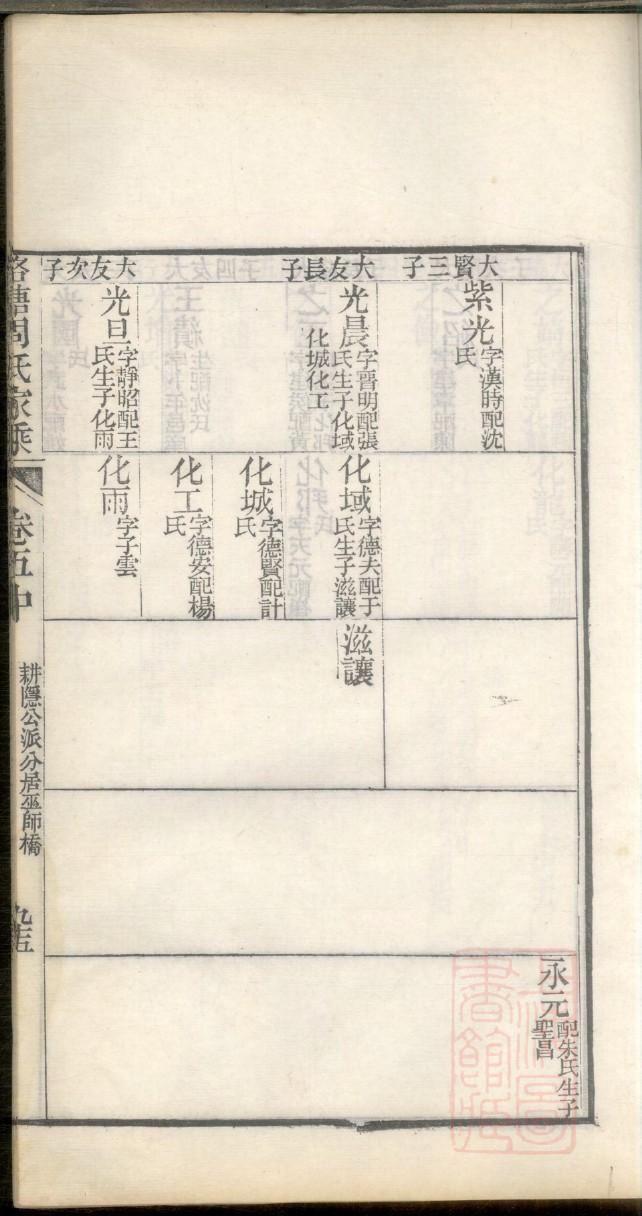 大賢三子
紫光
字漢時配沈
氏
大友長子
光晨
字晉明配張
氏生子化域
化城化工
大友次子
光旦
字靜昭配王
氏生子化雨
化域
字德夫配于
氏生子滋讓
化城
字德賢配計
氏
化工
字德安配楊
氏
化雨
字子雲
滋讓
永元
配朱氏生子
聖昌
周氏家乘
卷五中
耕隱公派分居巫師橋
九五